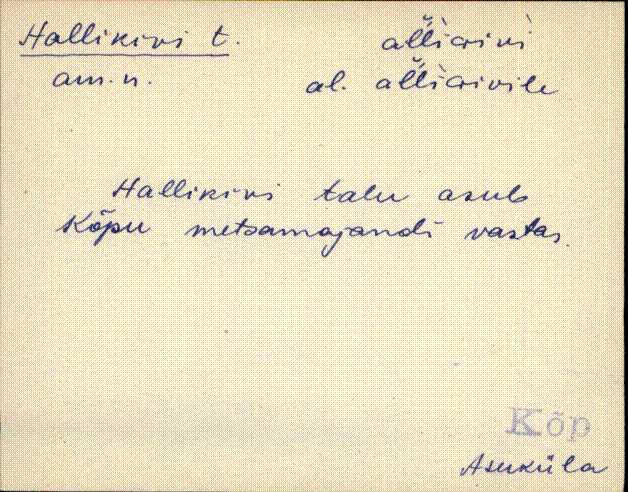 Hallikivi t. al̆l̀icivi
am.n. al. al̆l̀icivile
Hallikivi talu asub
Kõpu metsamajandi vastas.
Kõp
Asuküla